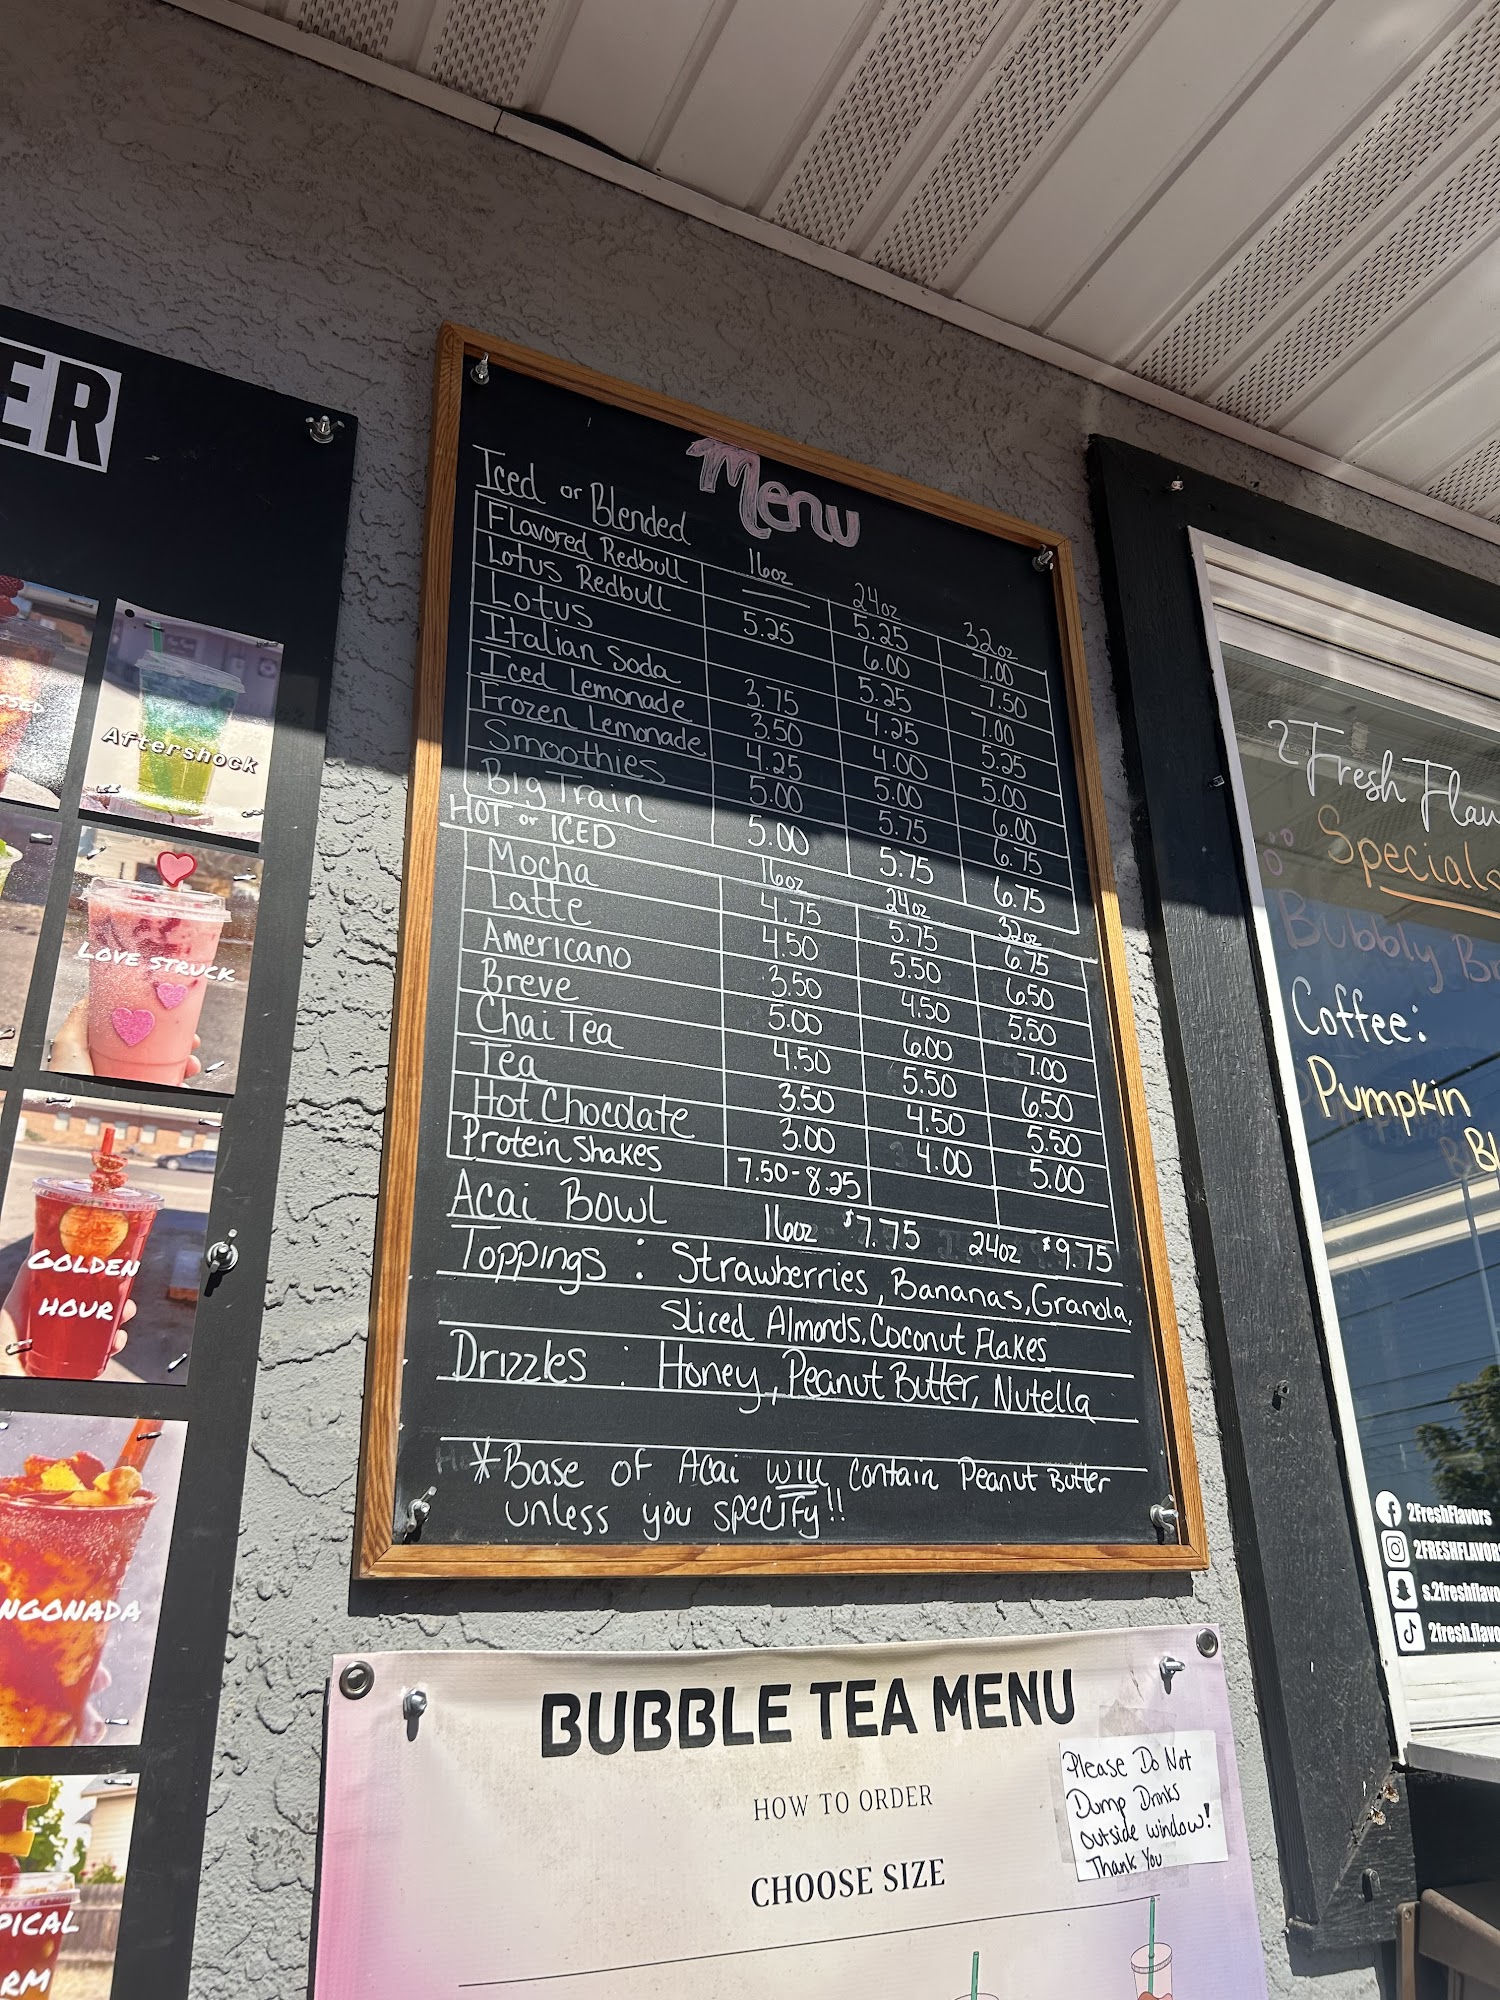 ER
Aftershock
LOVE STRUCK
GOLDEN
HOUR
Menu
Iced or Blended 16oz 24oz 32oz
Flavored Redbull 5.25 7.00
Lotus Redbull 5.25 6.00 7.50
Lotus 5.25 7.00
Italian Soda 3.75 4.25 5.25
Iced Lemonade 3.50 4.00 5.00
Frozen Lemonade 4.25 5.00 6.00
Smoothies 5.00 5.75 6.75
Big Train 5.00 5.75 6.75
HOT or ICED 16oz 24oz 32oz
Mocha 4.75 5.75 6.75
Latte 4.50 5.50 6.50
Americano 3.50 4.50 5.50
Breve 5.00 6.00 7.00
Chai Tea 4.50 5.50 6.50
Tea 3.50 4.50 5.50
Hot Chocolate 3.00 4.00 5.00
Protein Shakes 7.50-8.25
Acai Bowl 16oz $7.75 24oz $9.75
Toppings : Strawberries, Bananas, Granola,
Sliced Almonds, Coconut Flakes
Drizzles : Honey, Peanut Butter, Nutella
*Base of Acai will contain Peanut Butter
unless you specify!!
2Fresh Flav
Specials
Bubbly
Coffee:
Pumpkin
2FreshFlavors
2FRESHFLAVORS
s.2freshflavo
2fresh.flavo
BUBBLE TEA MENU
HOW TO ORDER
CHOOSE SIZE
Please Do Not
Dump Drinks
outside window!
Thank You
NGONADA
PICAL
RM